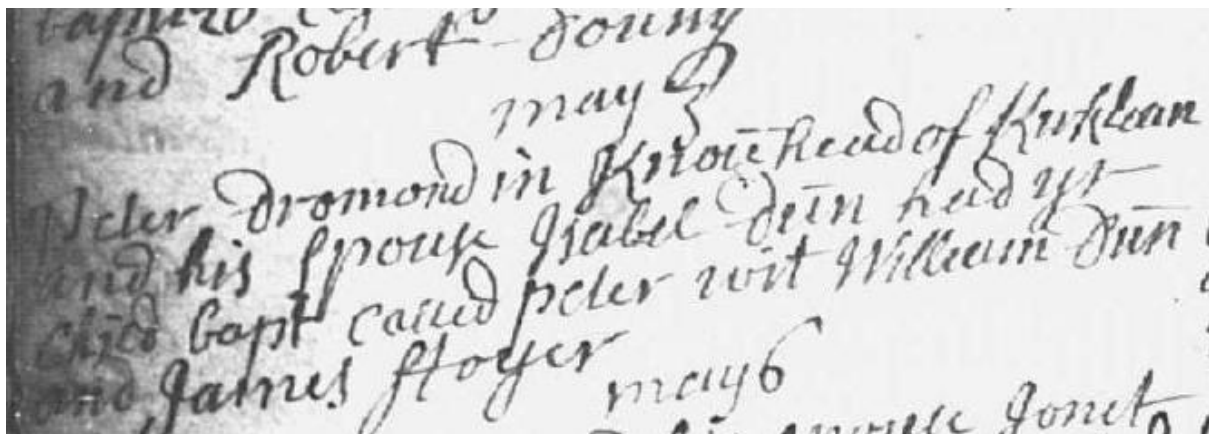 and Robert douny
may 3
Peter dromond in Knowhead of Kirkban
and his spouse Isabel dūn had yr
child bapt called peter wit William dūn
and James ffoyer
may 6
spouse Jonet